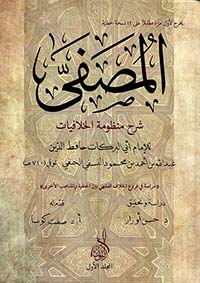 يخرج لأول مرة مقابلاً على ١٢ نسخة خطية
المصفى
شرح منظومة الخلافيات
للإمام أبي البركات حافظ الدين
عبد الله بن أحمد بن محمود النسفي الحنفي
دراسة في فروع الخلاف الفقهي بين الحنفية والمذاهب الأخرى
دراسة وتحقيق
قدم له
د. حسن أوزار
أ.د. صفت كوسا
المجلد الأول